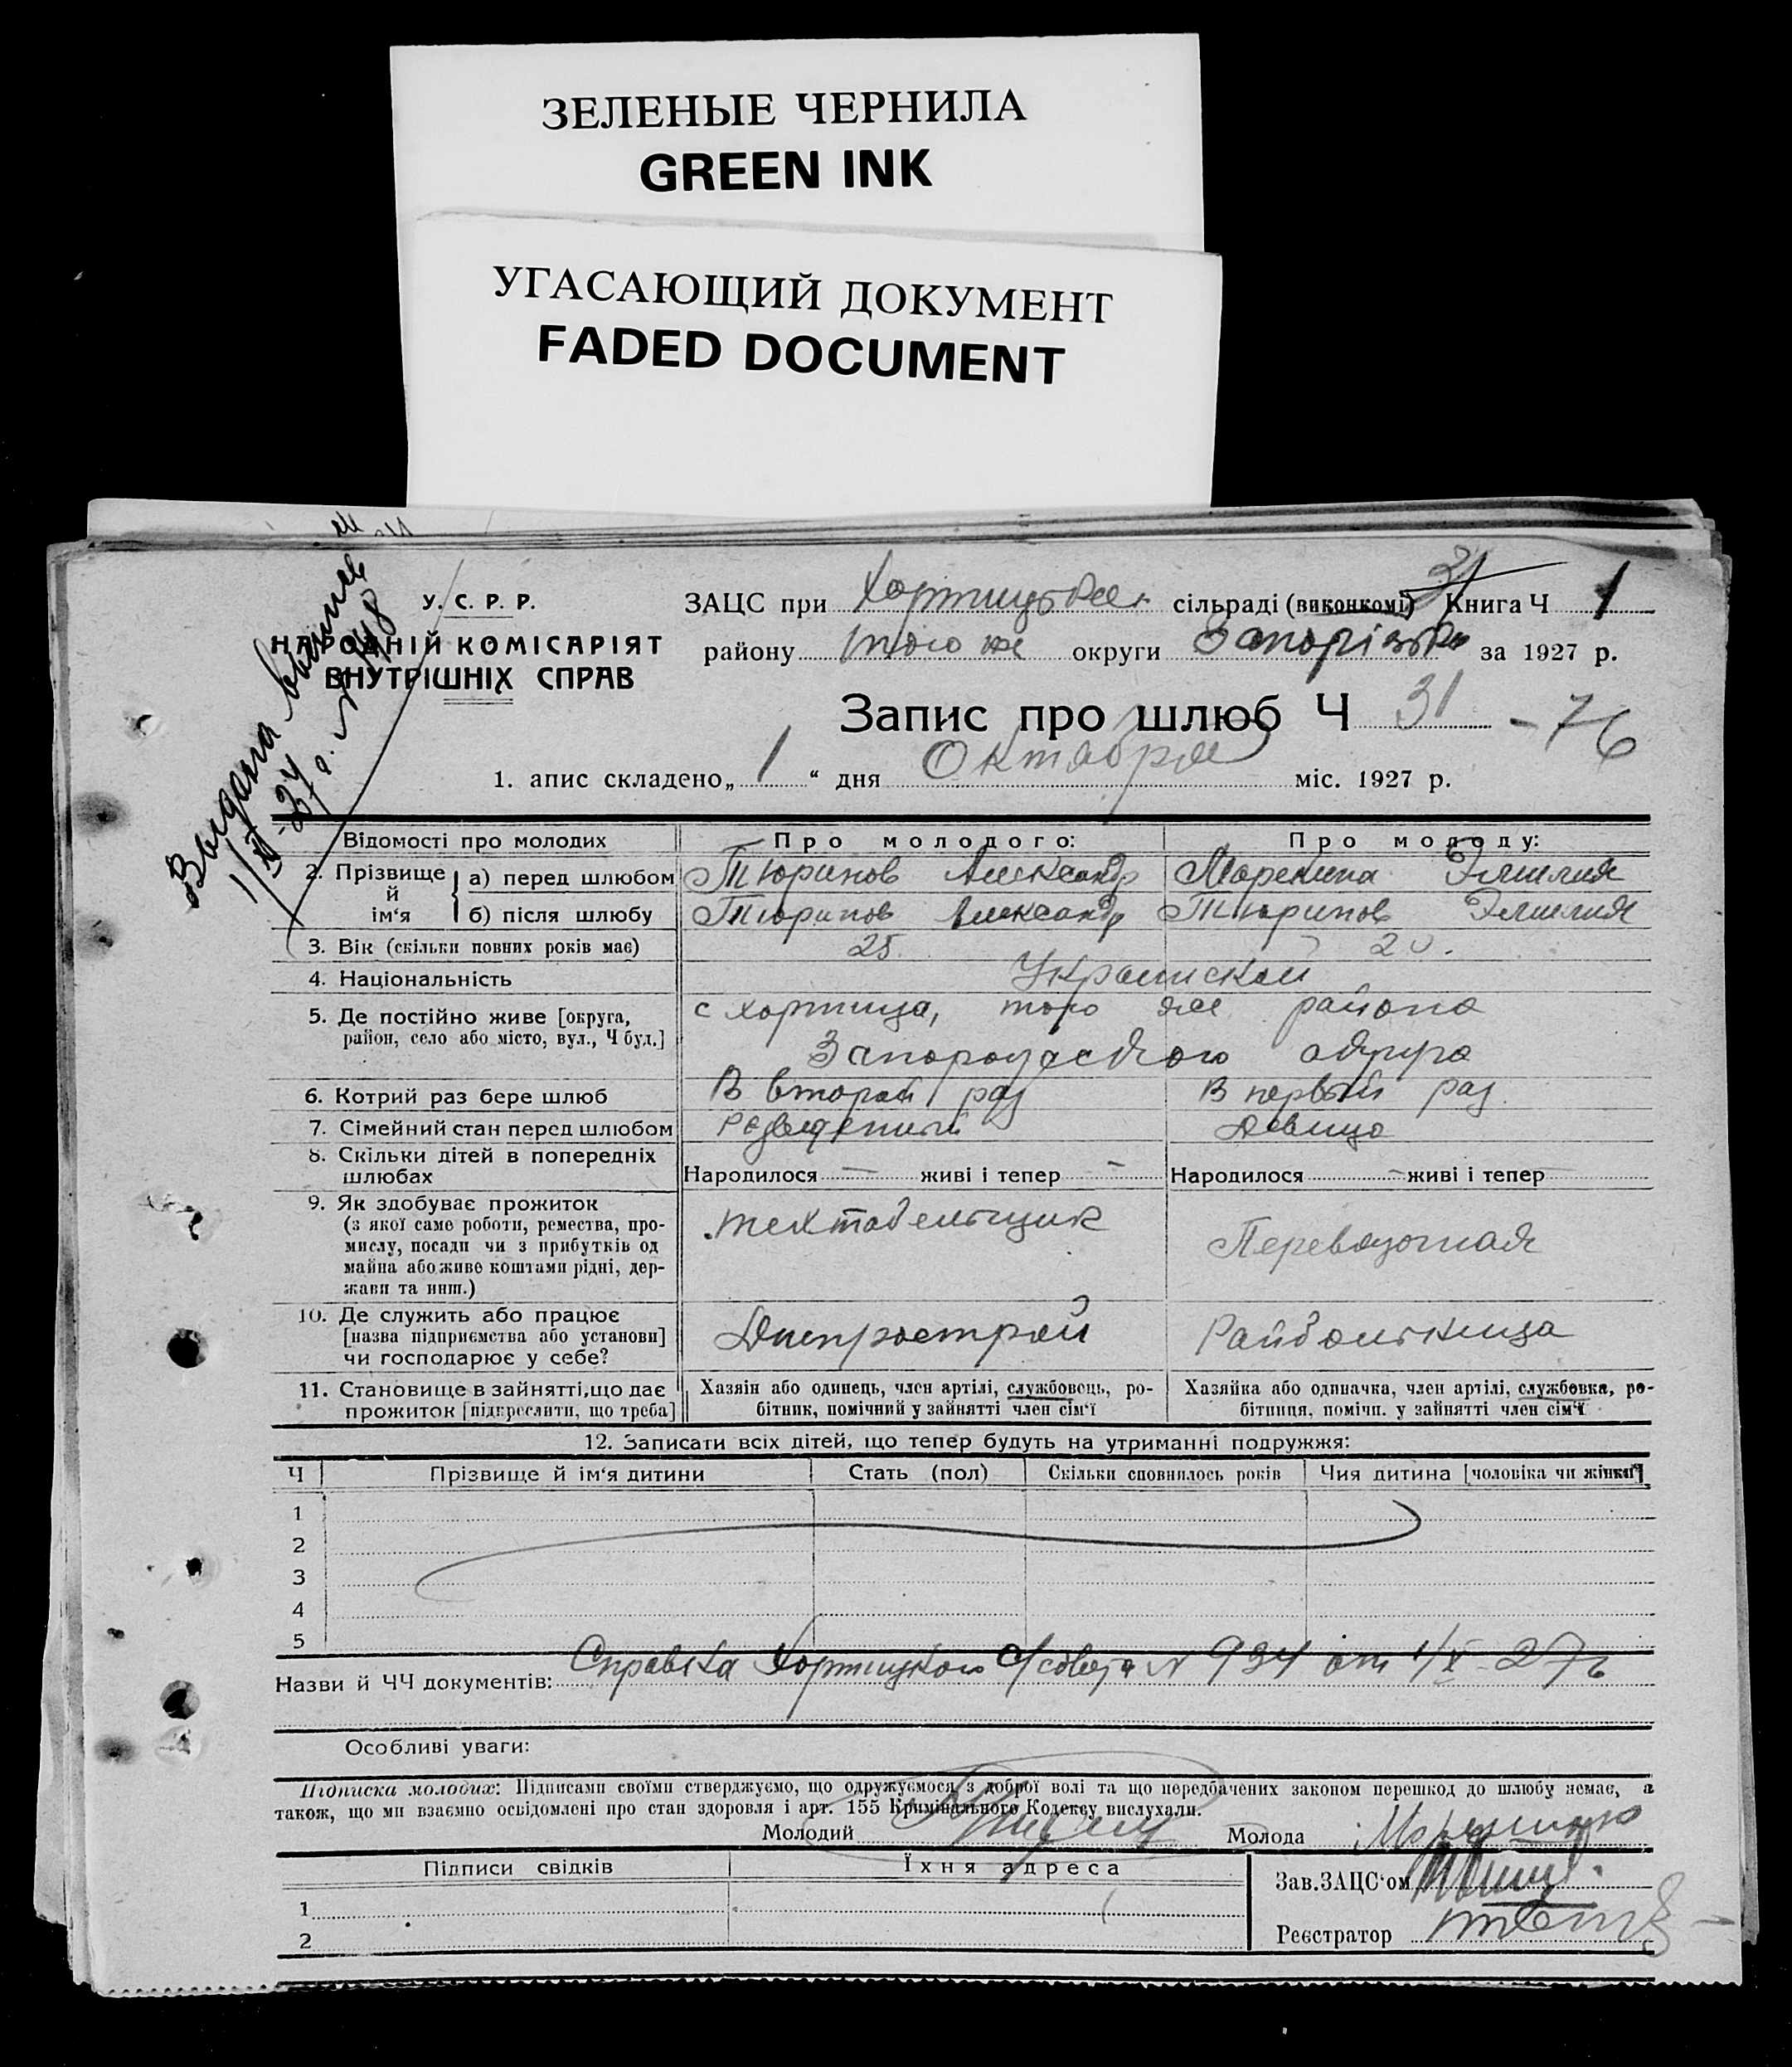 ЗЕЛЕНЫЕ ЧЕРНИЛА
GREEN INK
УГАСАЮЩИЙ ДОКУМЕНТ
FADED DOCUMENT
Выдана
У. С. Р. Р.
НАРОДНІЙ КОМІСАРІЯТ
ВНУТРІШНІХ СПРАВ
31
ЗАЦС при сільраді (виконкомі) Книга Ч 1
району того же округи за 1927 р.
Запис про шлюб Ч 31 - 76
1. апис складено „ 1 “ дня Октября міс. 1927 р.
Відомості про молодих Про молодого: Про молоду:
2. Прізвище й ім‘я
а) перед шлюбом Тюринов Александр Эмилия
б) після шлюбу Тюринов Александр Тюринов Эмилия
3. Вік (скільки повних років має) 25 20.
4. Національність
5. Де постійно живе [округа, с хортица, того же района
район, село або місто, вул., Ч буд.] округа
6. Котрий раз бере шлюб В второй раз В первый раз.
7. Сімейний стан перед шлюбом Девица
8. Скільки дітей в попередніх
шлюбах Народилося — живі і тепер — Народилося — живі і тепер
9. Як здобуває прожиток
(з якої саме роботи, ремества, про-
мислу, посади чи з прибутків од
майна або живе коштами рідні, дер-
жави та инш.)
10. Де служить або працює
[назва підприємства або установи] Днепрострой
чи господарює у себе?
11. Становище в зайнятті, що дає Хазяін або одинець, член артілі, службовець, ро- Хазяйка або одиначка, член артілі, службовка, ро-
прожиток [підкреслити, що треба] бітник, помічний у зайнятті член сім‘ї бітниця, помічн. у зайнятті член сім‘ї
12. Записати всіх дітей, що тепер будуть на утриманні подружжя:
Ч Прізвище й ім‘я дитини Стать (пол) Скільки сповнилось років Чия дитина [чоловіка чи жінки]
1
2
3
4
5
Назви й ЧЧ документів: Справка Хортицкого с/совета N 934 от 1/X-27г
Особливі уваги:
Підписка молодих: Підписами своїми стверджуємо, що одружуємося з доброї волі та що передбачених законом перешкод до шлюбу немає, а
також, що ми взаємно освідомлені про стан здоровля і арт. 155 Кримінального Кодексу вислухали.
Молодий Молода
Підписи свідків Їхня адреса
Зав. ЗАЦС‘ом
1
Реєстратор
2